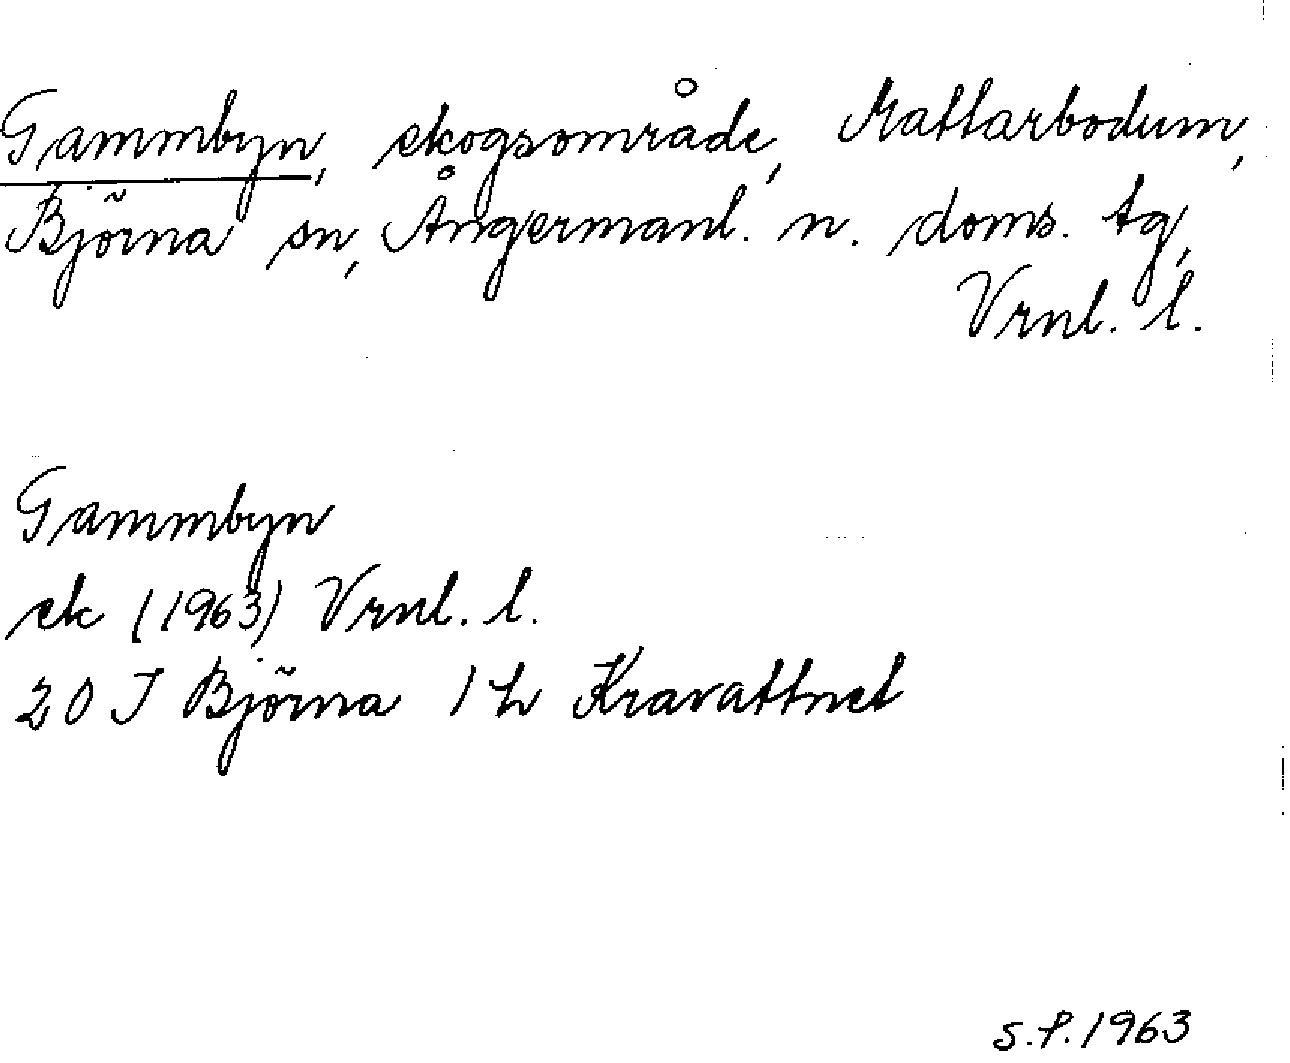 Gammbyn, skogsområde, Mattarbodum,
Björna sn, Ångermanl. n. doms. tg,
Vrnl. l.
Gammbyn
ek (1963) Vrnl. l.
20 I Björna 1 h Kravattnet
S.P. 1963